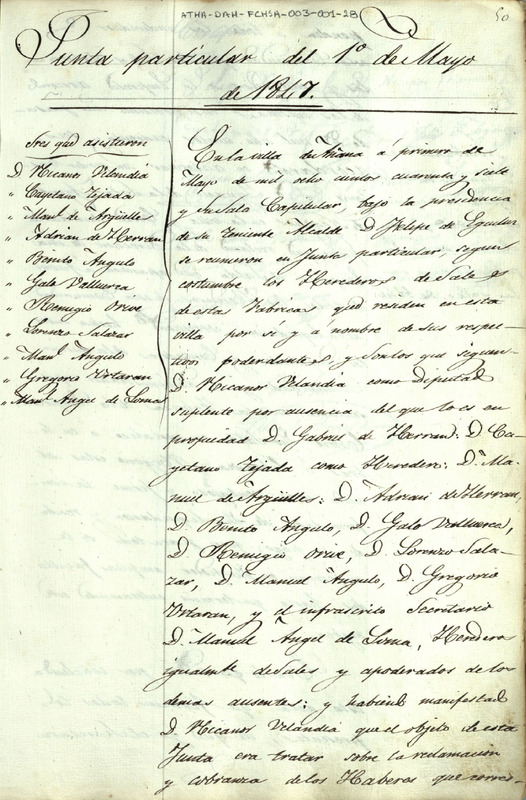 ATHA-DAH-FCHSA-003-001-28
50
Junta particular del 1º de Mayo
de 1847.
Sres que asistieron
D. Nicanor Velandia
" Cayetano Tejada
" Manl. de Argüelles
" Adrian de Herran
" Benito Angulo
" Galo Valluerca
" Remigio Orive
" Lorenzo Salazar
" Manl. Angulo
" Gregorio Urtaran
" Manl. Angel de Loma
En la villa de Añana a primero de
Mayo de mil ocho cientos cuarenta y siete
y Su Sala Capitular, bajo la presidencia
de su Teniente Alcalde D. Felipe de Eguiluz
se reunieron en Junta particular, segun
costumbre los Herederos de Sales
de estas Fabricas que residen en esta
villa por sí y a nombre de sus respec-
tivos poderdantes, y son los que siguen:
D. Nicanor Velandia como Diputado
suplente por ausencia del que lo es en
propiedad D. Gabriel de Herran: D. Ca-
yetano Tejada como Heredero: D. Ma-
nuel de Argüelles: D. Adrian de Herran,
D. Benito Angulo, D. Galo Valluerca,
D. Remigio Orive, D. Lorenzo Sala-
zar, D. Manuel Angulo, D. Gregorio
Urtaran, y el infrascrito Secretario
D. Manuel Angel de Loma, Heredero
igualmte. de Sales y apoderados de los
demas ausentes; y habiendo manifestado
D. Nicanor Velandia que el objeto de esta
Junta era tratar sobre la reclamacion
y cobranza de los Haberes que corres-